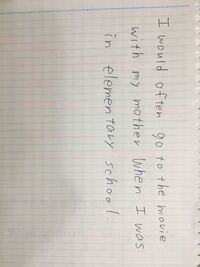 I would often go to the movie
with my mother When I was
in elementary school.